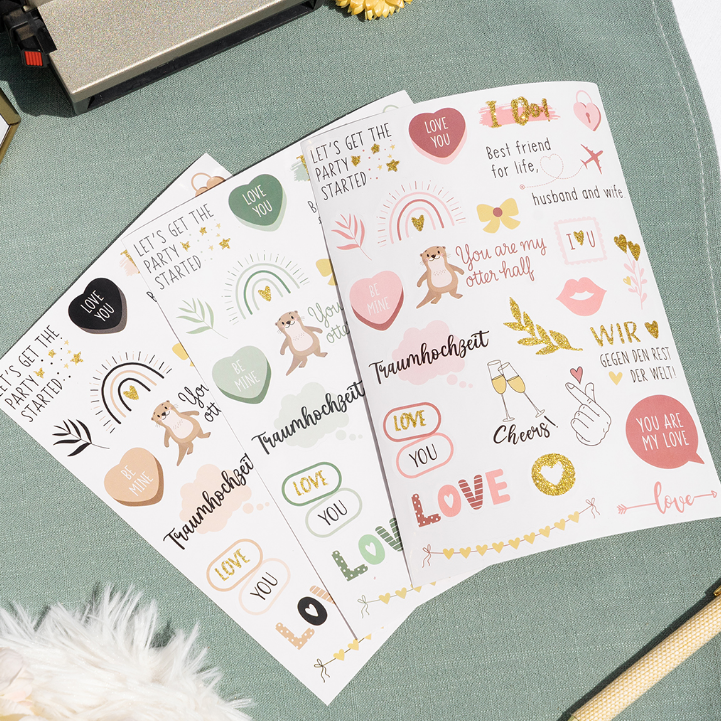 LET'S GET THE
PARTY
STARTED
LOVE
YOU
BE
MINE
Traumhochzeit
LOVE
YOU
LO
LET'S GET THE
PARTY
STARTED
LOVE
YOU
You
otter
BE
MINE
Traumhochzeit
LOVE
YOU
LOVE
LET'S GET THE
PARTY
STARTED
LOVE
YOU
I Do!
Best friend
for life,
husband and wife
You are my
otter half
I U
BE
MINE
Traumhochzeit
WIR
GEGEN DEN REST
DER WELT!
Cheers!
LOVE
YOU
YOU ARE
MY LOVE
LOVE
love